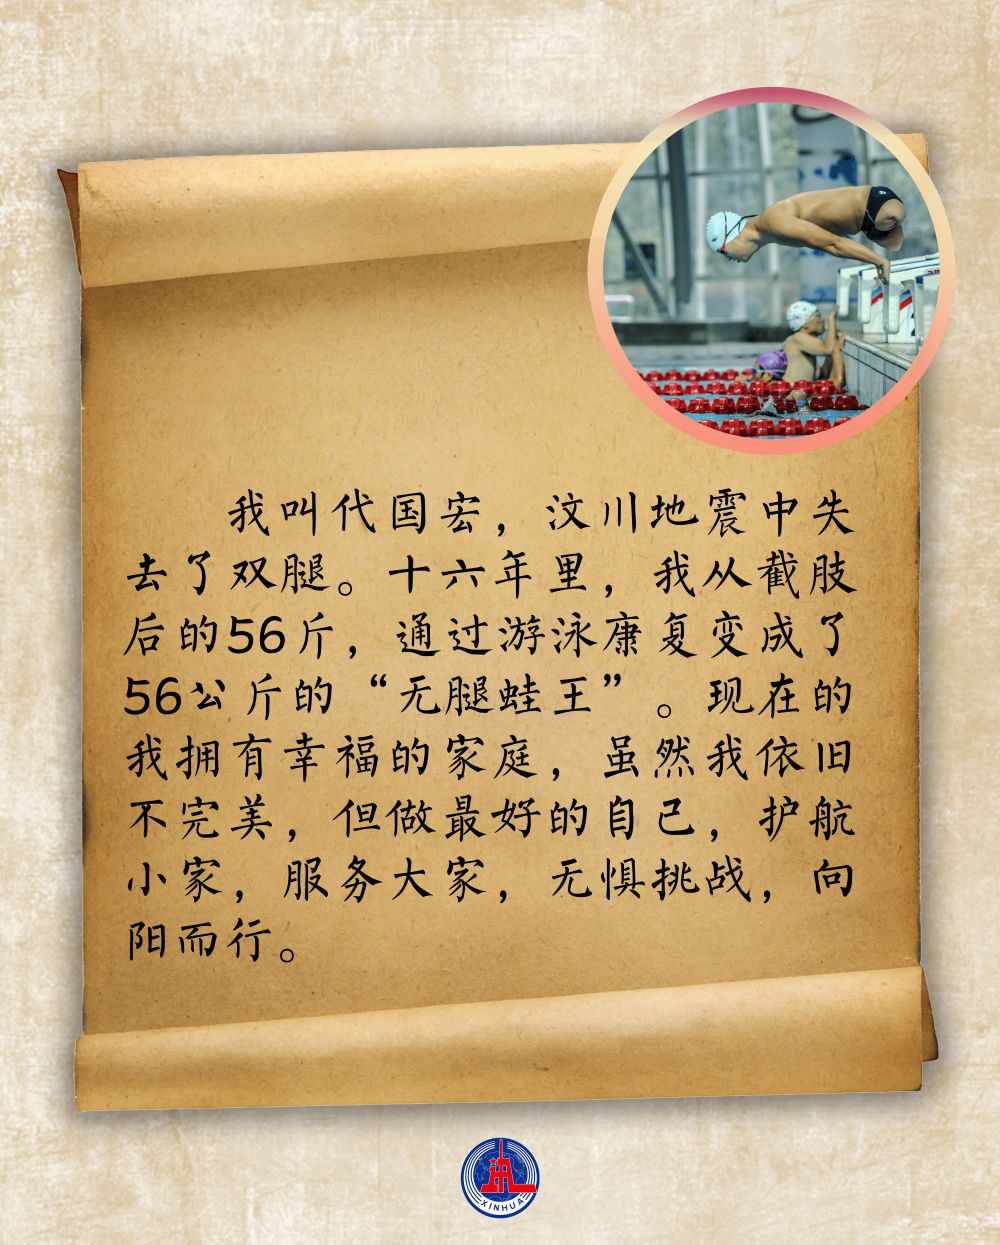 我叫代国宏，汶川地震中失
去了双腿。十六年里，我从截肢
后的56斤，通过游泳康复变成了
56公斤的“无腿蛙王”。现在的
我拥有幸福的家庭，虽然我依旧
不完美，但做最好的自己，护航
小家，服务大家，无惧挑战，向
阳而行。
讯
XINHUA